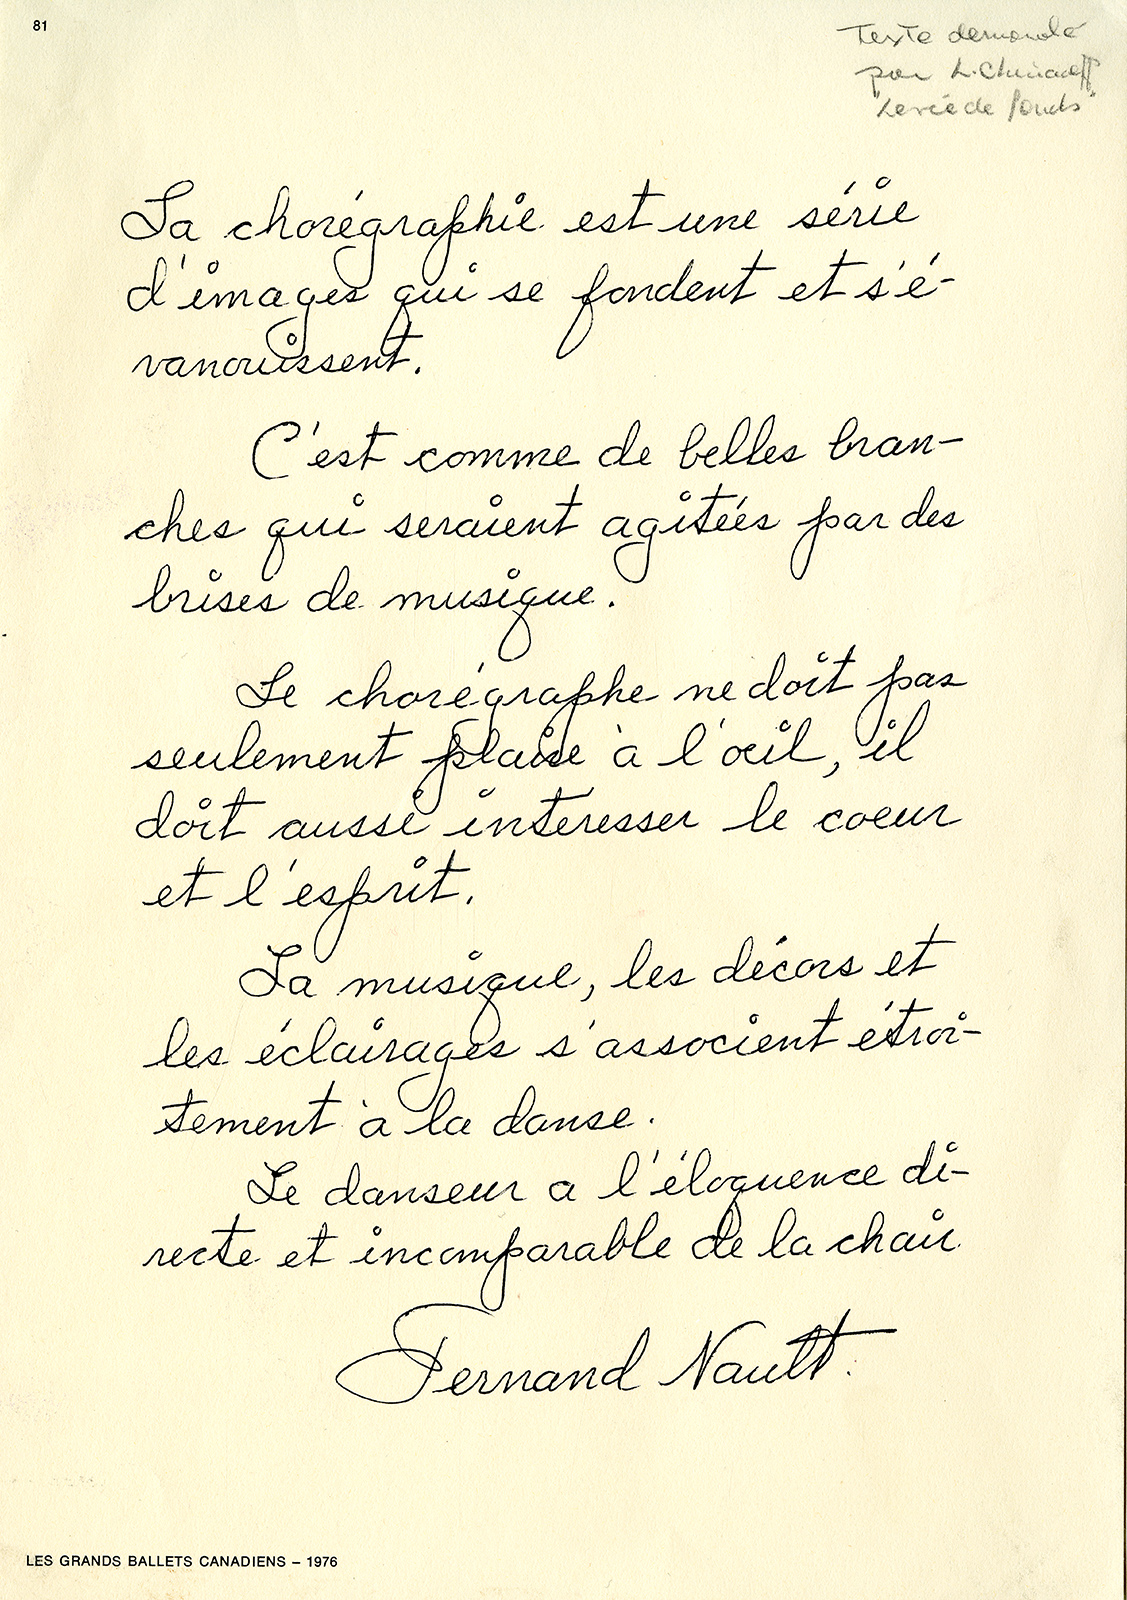 81
Texte demandé
par L. Chiriaeff
"Levée de fonds"
La chorégraphie est une série
d'images qui se fondent et s'é-
vanouissent.
C'est comme de belles bran-
ches qui seraient agitées par des
brises de musique.
Le chorégraphe ne doit pas
seulement plaire à l'oeil, il
doit aussi intéresser le coeur
et l'esprit.
La musique, les décors et
les éclairages s'associent étroi-
tement à la danse.
Le danseur a l'éloquence di-
recte et incomparable de la chair
Fernand Nault.
LES GRANDS BALLETS CANADIENS – 1976